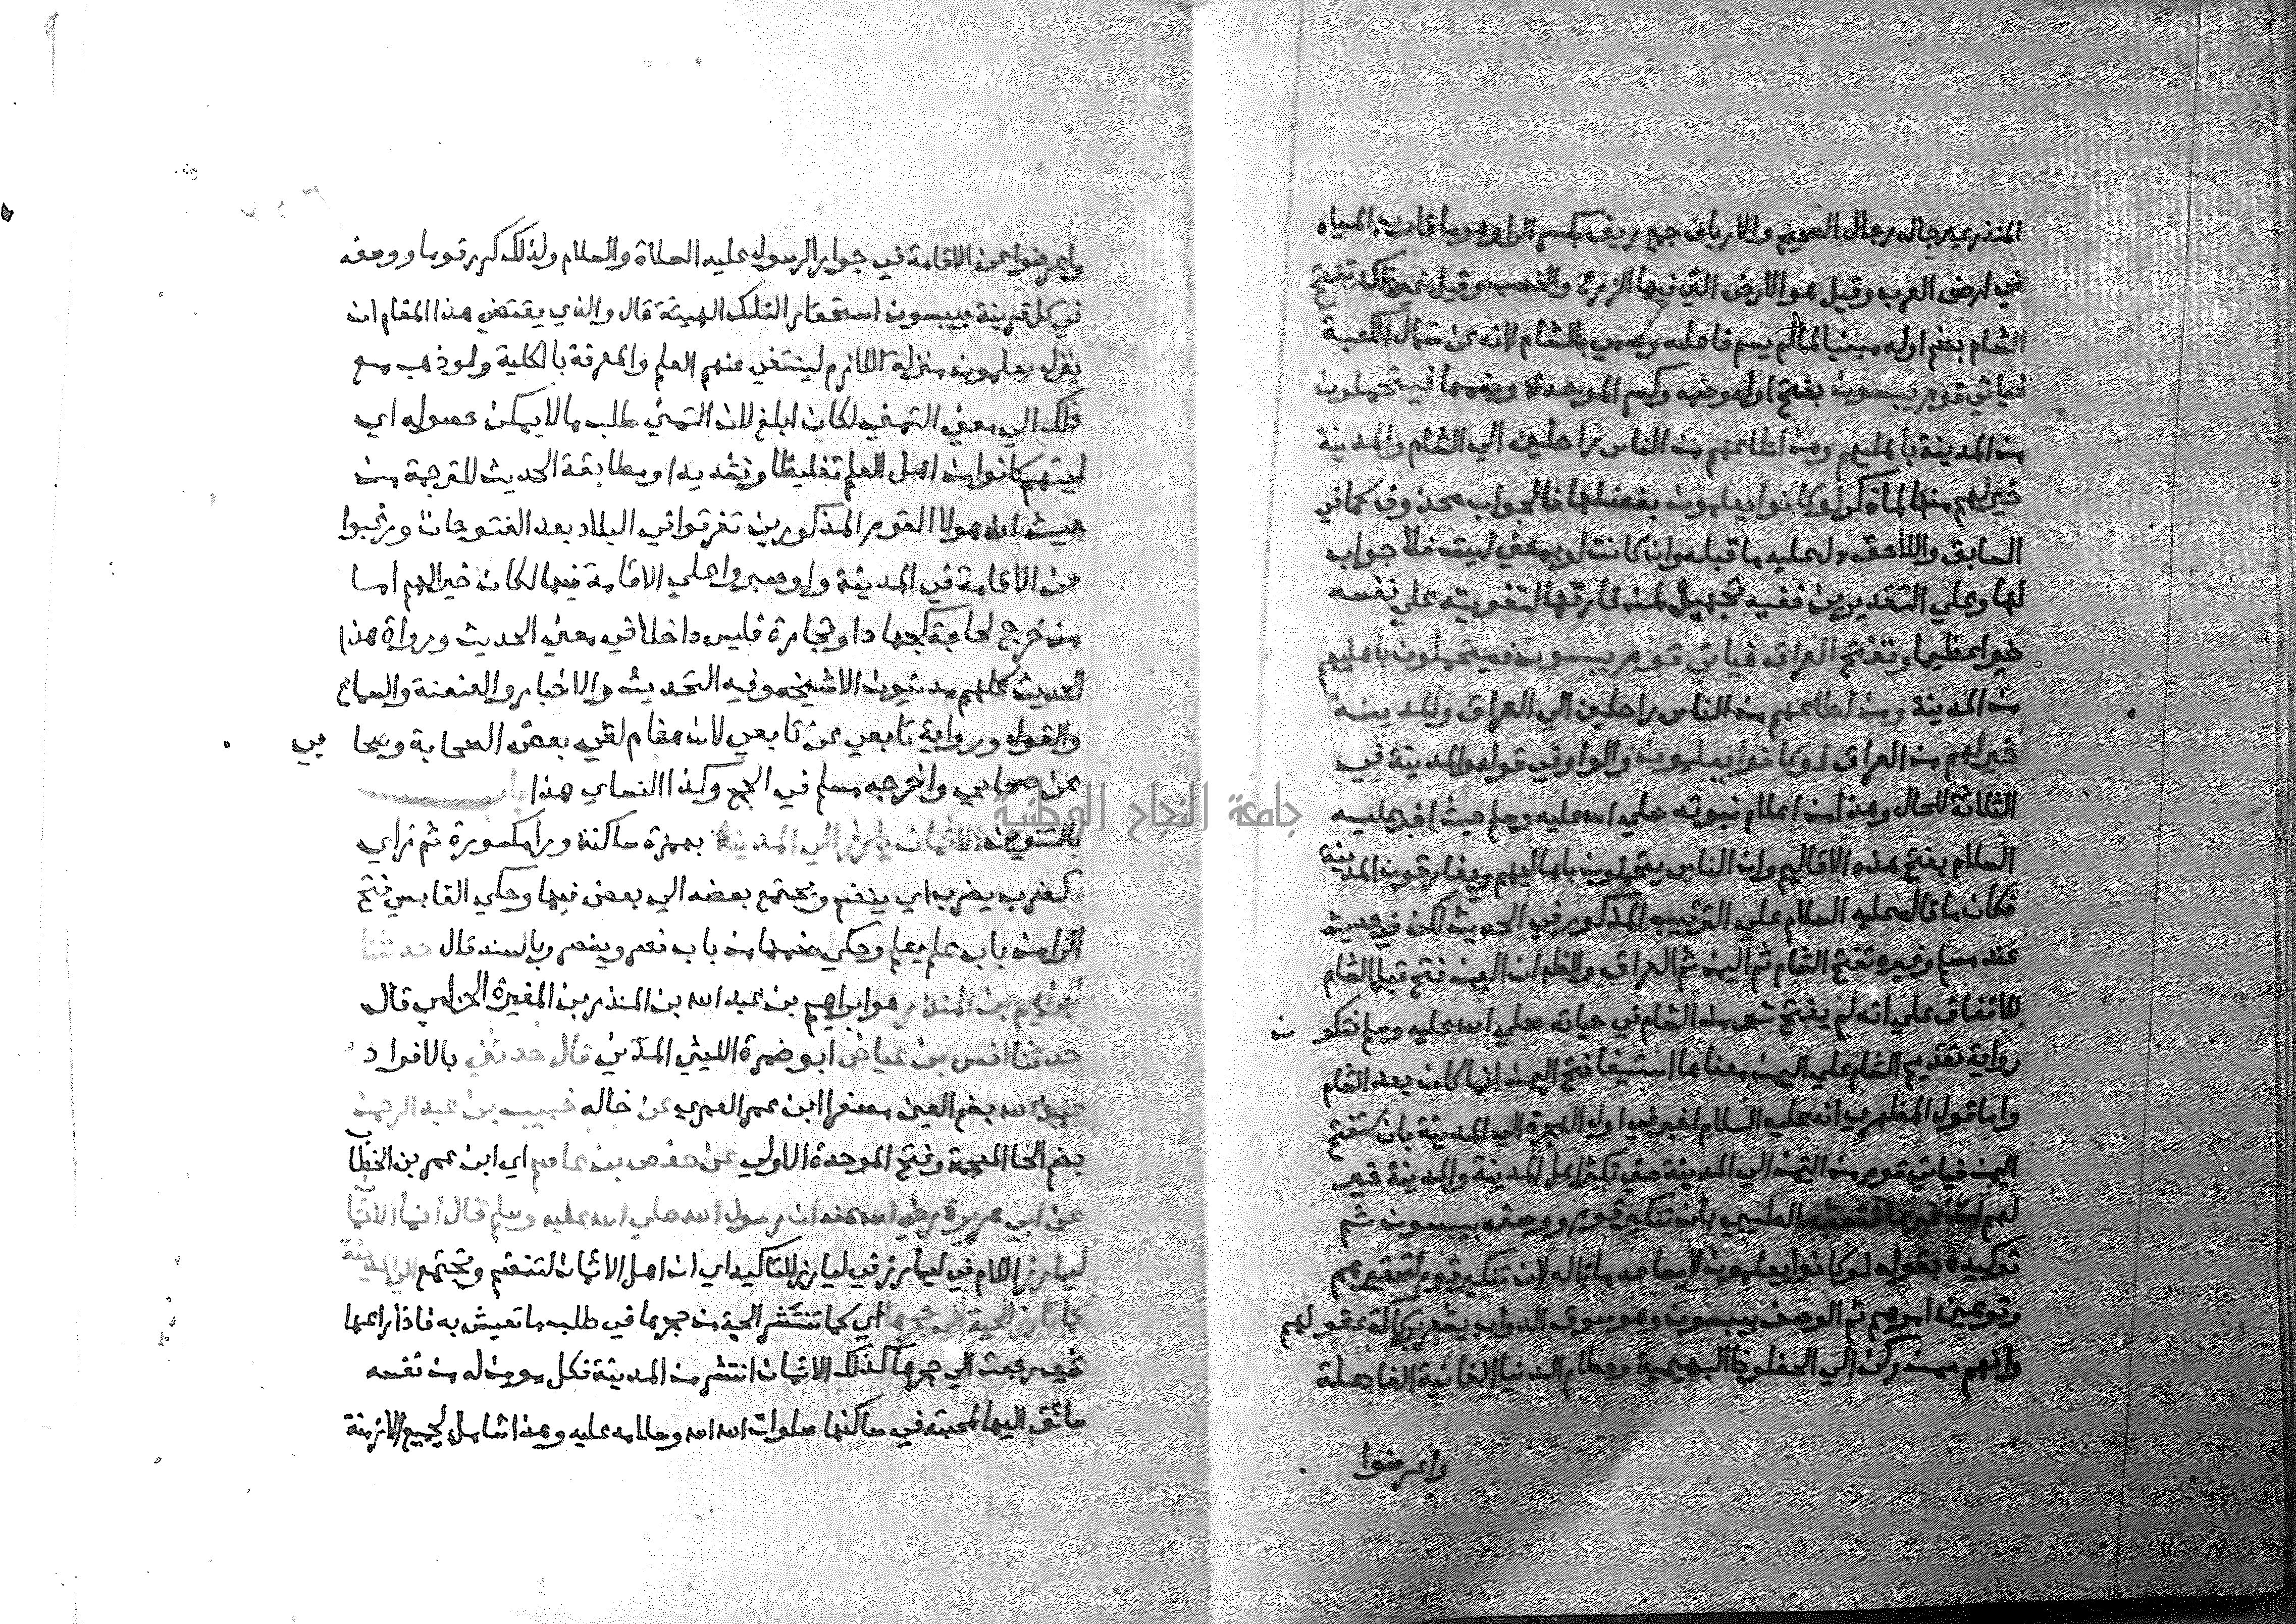 المنذري رجاله رجال الصحيح والارياف جمع ريف بكسر الراء وهو ما قارب المياه
في ارض العرب وقيل هو الارض التي فيها الزرع والخصب وقيل غير ذلك تفتح
الشام بضم اوله مبنيا لما لم يسم فاعله وسمي بالشام لانه عن شمال الكعبة
فياتي قوم يبسون بفتح اوله وضمه وكسر الموحدة وضمها فيتحملون
من المدينة باهليهم ومن اطاعهم من الناس راحلين الي الشام والمدينة
خير لهم منها لما ذكر لو كانوا يعلمون بفضلها فالجواب محذوف كما في
السابق واللاحق دل عليه ما قبله وان كانت لو بمعني ليت فلا جواب
لها وعلي التقديرين ففيه تجهيل لمن فارقها لتفويته علي نفسه
خيرا عظيما وتفتح العراق فياتي قوم يبسون فيتحملون باهليهم
من المدينة ومن اطاعهم من الناس راحلين الي العراق والمدينة
خير لهم من العراق لو كانوا يعلمون والواو في قوله والمدينة في
الثلاثة للحال وهذا من اعلام نبوته صلي الله عليه وسلم حيث اخبر عليه
السلام بفتح هذه الاقاليم وان الناس يتحملون باهاليهم ويفارقون المدينة
فكان ما قاله عليه السلام علي الترتيب المذكور في الحديث لكن في حديث
عند مسلم وغيره تفتح الشام ثم اليمن ثم العراق والظاهر ان اليمن فتح قبل الشام
للاتفاق علي انه لم يفتح شي من الشام في حياته صلي الله عليه وسلم فتكون
رواية تقديم الشام علي اليمن معناها استيفا فتح اليمن انما كان بعد الشام
واما قول المظهري انه عليه السلام اخبر في اول الهجرة الي المدينة بان ستفتح
اليمن فياتي قوم من اليمن الي المدينة حتي تكثر اهل المدينة والمدينة خير
لهم من غيرها فتعقبه الطيبي بان تنكير قوم ووصفه بيبسون ثم
توكيده بقوله لو كانوا يعلمون لا يساعد ما قاله لان تنكير قوم لتحقيرهم
وتوهين امرهم ثم الوصف بيبسون وهو سوق الدواب يشعر بركاكة عقولهم
وانهم ممن ركن الي الحظوظ البهيمية وحطام الدنيا الفانية العاجلة
واعرضوا
واعرضوا عن الاقامة في جوار الرسول عليه الصلاة والسلام ولذلك كرر قوما ووصفه
في كل قرينة بيبسون استحقارا لتلك الهيئة قال والذي يقتضي هذا المقام ان
ينزل يعلمون منزلة اللازم لينتفي عنهم العلم والمعرفة بالكلية ولو ذهب مع
ذلك الي معني التمني لكان ابلغ لان التمني طلب ما لا يمكن حصوله اي
ليتهم كانوا من اهل العلم تغليظا وتشديدا ومطابقة الحديث للترجمة من
حيث ان هولا القوم المذكورين تفرقوا في البلاد بعد الفتوحات ورغبوا
عن الاقامة في المدينة ولو صبروا علي الاقامة فيها لكان خيرا لهم اما
من خرج لحاجة كجهاد او تجارة فليس داخلا في معني الحديث ورواة هذا
الحديث كلهم مدنيون الا شيخه وفيه التحديث والاخبار والعنعنة والسماع
والقول ورواية تابعي عن تابعي لان هشام لقي بعض الصحابة وصحابي
عن صحابي واخرجه مسلم في الحج وكذا النساي هذا باب
بالتنوين الايمان يارز الي المدينة بهمزة ساكنة ورا مكسورة ثم زاي
كضرب يضرب اي ينضم ويجتمع بعضه الي بعض فيها وحكي القابسي فتح
الرا من باب علم يعلم وحكي ضمها من باب نصر ينصر وبالسند قال حدثنا
ابراهيم بن المنذر هو ابراهيم بن عبد الله بن المنذر بن المغيرة الحزامي قال
حدثنا انس بن عياض ابو ضمرة الليثي المدني قال حدثني بالافراد
عبيد الله بضم العين مصغرا ابن عمر العمري عن خاله خبيب بن عبد الرحمن
بضم الخا المعجمة وفتح الموحدة الاولي عن حفص بن عاصم اي ابن عمر بن الخطاب
عن ابي هريرة رضي الله عنه ان رسول الله صلي الله عليه وسلم قال ان الايمان
ليارز اللام في ليارز للتاكيد اي ان اهل الايمان لتنضم وتجتمع الي المدينة
كما تارز الحية الي جحرها اي كما تنتشر الحية من جحرها في طلب ما تعيش به فاذا راعها
شي رجعت الي جحرها كذلك الايمان انتشر من المدينة فكل مومن له من نفسه
سائق اليها لمحبته في ساكنها صلوات الله وسلامه عليه وهذا شامل لجميع الازمنة
جامعة النجاح الوطنية